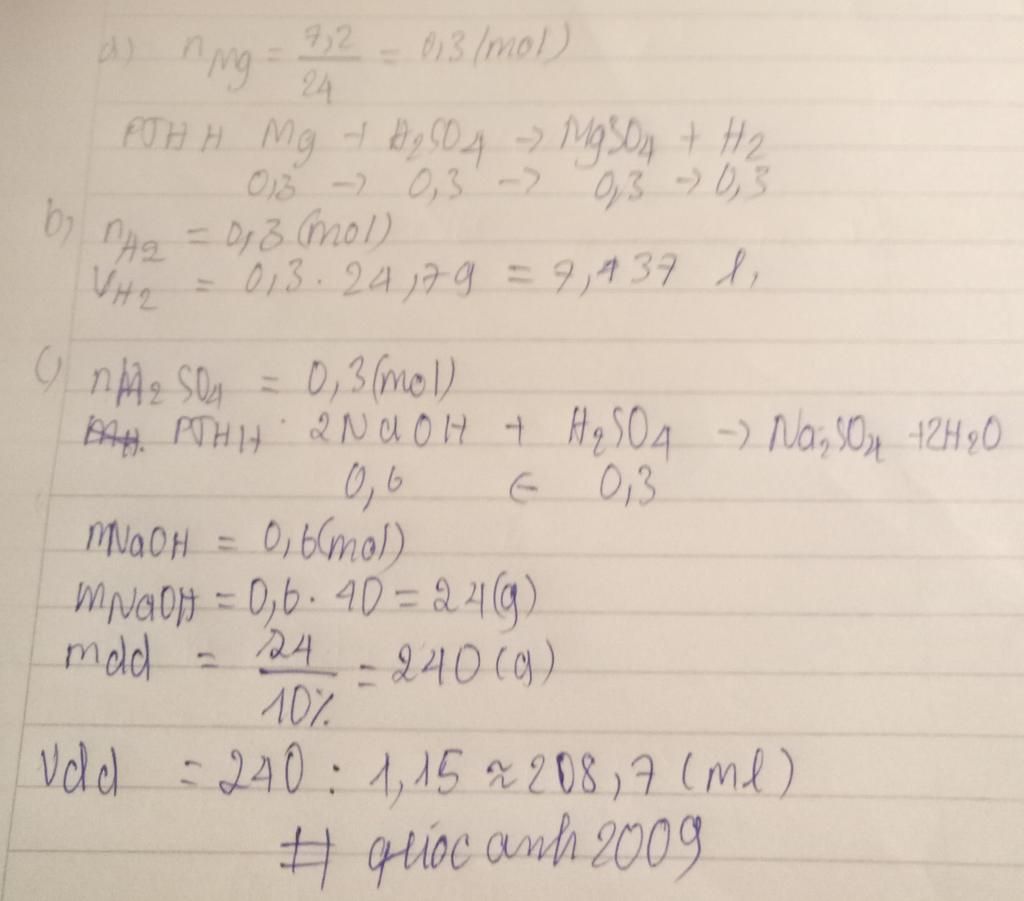 a) nMg = 7,2/24 = 0,3 (mol)
PTHH Mg + H2SO4 -> MgSO4 + H2
0,3 -> 0,3 -> 0,3 -> 0,3
b) nH2 = 0,3 (mol)
VH2 = 0,3 . 24,79 = 7,437 l,
c) nH2SO4 = 0,3 (mol)
PTHH: 2NaOH + H2SO4 -> Na2SO4 + 2H2O
0,6 ← 0,3
mNaOH = 0,6 (mol)
mNaOH = 0,6 . 40 = 24 (g)
mdd = 24/10% = 240 (g)
Vdd = 240 : 1,15 ≈ 208,7 (ml)
# quocanh2009